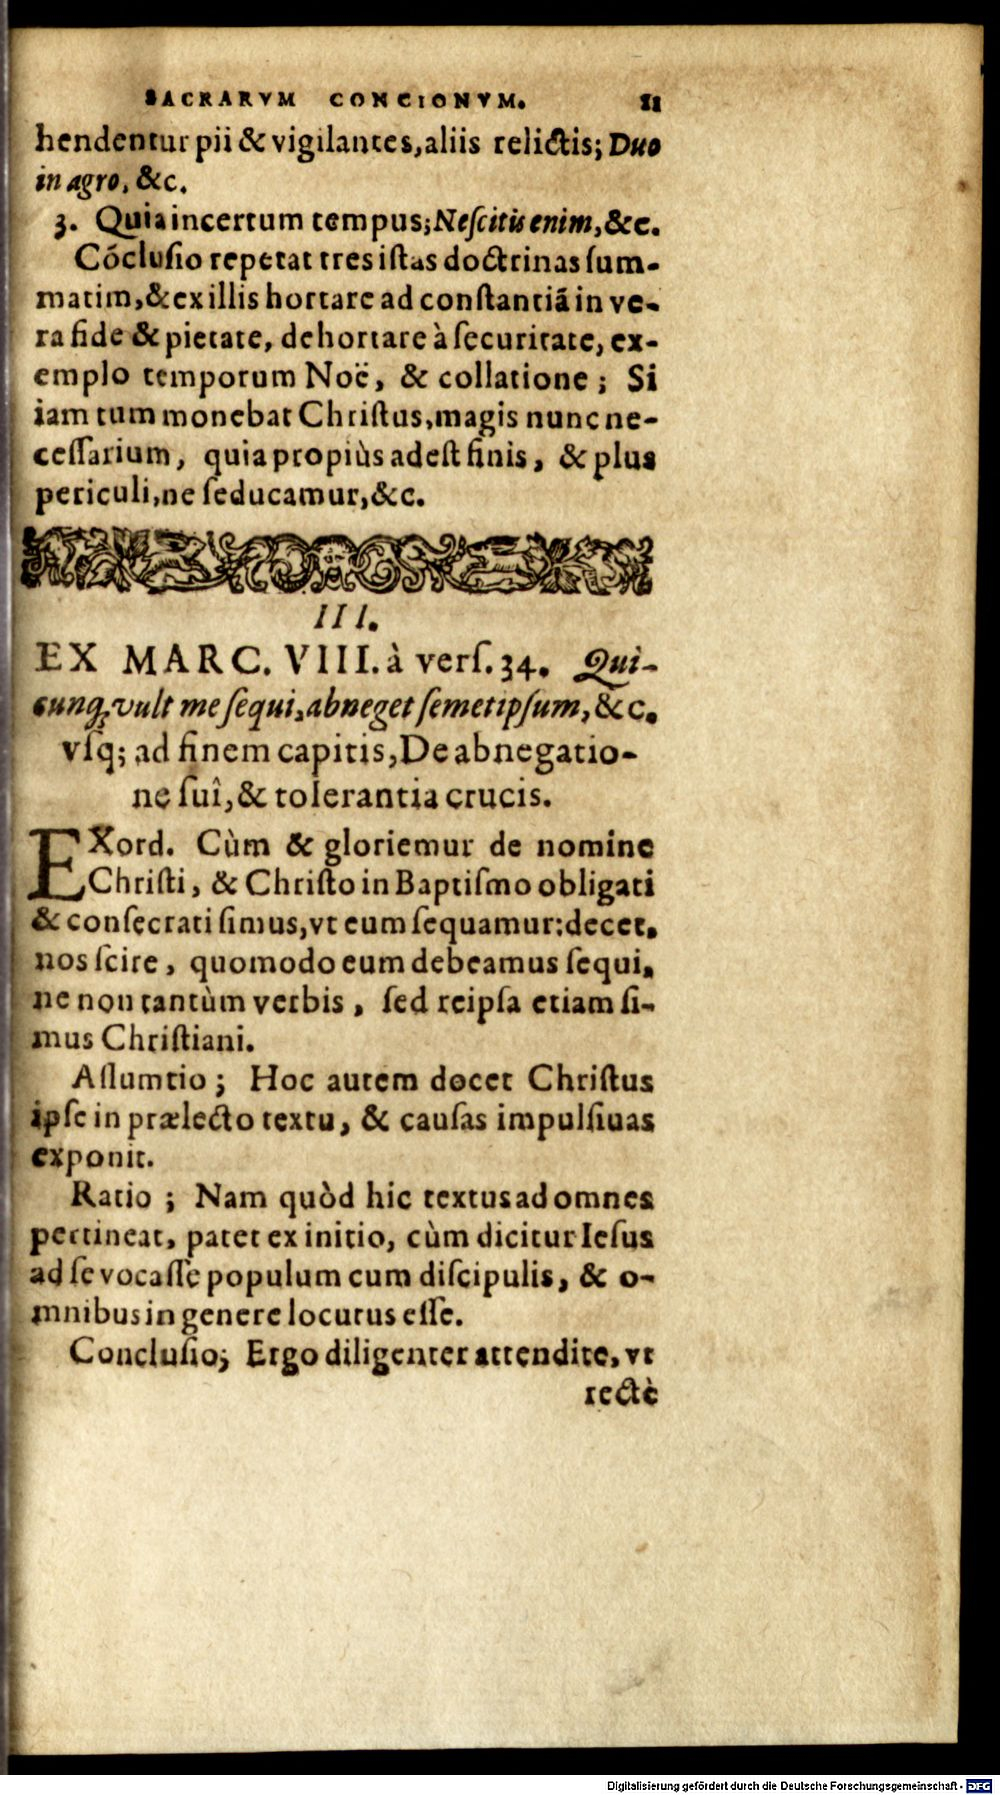 SACRARVM CONCIONVM. 11
hendentur pii & vigilantes, aliis relictis; Duo
in agro, &c.
3. Quia incertum tempus; Neſcitis enim, &c.
Cōcluſio repetat tres iſtas doctrinas ſum-
matim, & ex illis hortare ad conſtantiā in ve-
ra fide & pietate, dehortare à ſecuritate, ex-
emplo temporum Noë, & collatione; Si
iam tum monebat Chriſtus, magis nunc ne-
ceſſarium, quia propiùs adeſt finis, & plus
periculi, ne ſeducamur, &c.
III.
EX MARC. VIII. à verſ. 34. Qui-
cunq; vult me ſequi, abneget ſemetipſum, &c.
vſq; ad finem capitis, De abnegatio-
ne ſuî, & tolerantia crucis.
EXord. Cùm & gloriemur de nomine
Chriſti, & Chriſto in Baptiſmo obligati
& conſecrati ſimus, vt eum ſequamur: decet,
nos ſcire, quomodo eum debeamus ſequi,
ne non tantùm verbis, ſed reipſa etiam ſi-
mus Chriſtiani.
Aſſumtio; Hoc autem docet Chriſtus
ipſe in prælecto textu, & cauſas impulſiuas
exponit.
Ratio; Nam quòd hic textus ad omnes
pertineat, patet ex initio, cùm dicitur Ieſus
ad ſe vocaſſe populum cum diſcipulis, & o-
mnibus in genere locutus eſſe.
Concluſio; Ergo diligenter attendite, vt
rectè
Digitalisierung gefördert durch die Deutsche Forschungsgemeinschaft - DFG